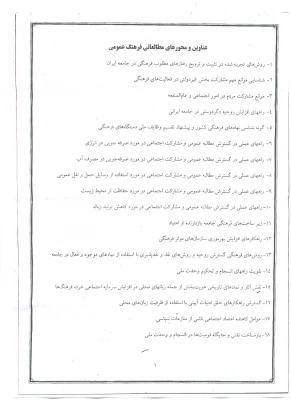 عناوین و محورهای مطالعاتی فرهنگ عمومی
۱- روش‌های تجربه شده در تثبیت و ترویج رفتارهای مطلوب فرهنگی در جامعه ایران
۲- شناسایی موانع مهم مشارکت بخش غیردولتی در فعالیت‌های فرهنگی
۳- موانع مشارکت مردم در امور اجتماعی و عام‌المنفعه
۴- راههای افزایش روحیه دگردوستی در جامعه ایرانی
۵- گونه شناسی نهادهای فرهنگی کشور و پیشنهاد تقسیم وظایف ملی دستگاه‌های فرهنگی
۶- راههای عملی در گسترش مطالبه عمومی و مشارکت اجتماعی در مورد صرفه جویی در انرژی
۷- راههای عملی در گسترش مطالبه عمومی و مشارکت اجتماعی در مورد صرفه‌جویی در مصرف آب
۸- راههای عملی در گسترش مطالبه عمومی و مشارکت اجتماعی در مورد استفاده از وسایل حمل و نقل عمومی
۹- راههای عملی در گسترش مطالبه عمومی و مشارکت اجتماعی در مورد حفاظت از محیط زیست
۱۰- راههای عملی در گسترش مطالبه عمومی و مشارکت اجتماعی در مورد کاهش تولید زباله
۱۱- زیر ساخت‌های فرهنگی جامعه بازدارنده از اعتیاد
۱۲- راهکارهای افزایش بهره‌وری سازمان‌های موثر فرهنگی
۱۳- روش‌های فرهنگی گسترش روحیه و روش‌های نقد و نقدپذیری با استفاده از نمادهای موجود و فعال در جامعه
۱۴- تقویت راههای انسجام و تحکیم وحدت ملی
۱۵- نقش آثار و نمادهای تاریخی هویت‌بخش از جمله زبانهای محلی در افزایش سرمایه اجتماعی خرده فرهنگ‌ها
۱۶- گسترش راهکارهای تحقق ادبیات آیینی با استفاده از ظرفیت زبان‌های محلی
۱۷- عوامل کاهنده اعتماد اجتماعی ناشی از منازعات سیاسی
۱۸- بازشناخت نقش و جایگاه قومیت‌ها در انسجام و وحدت ملی
۱